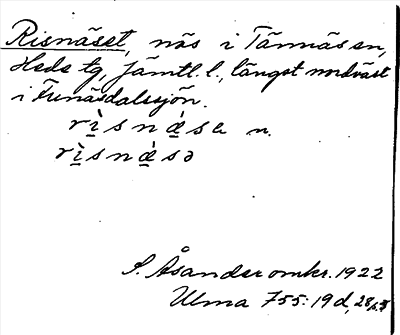 Risnäset, näs i Tännäs sn,
Heds tg, Jämtl. l., längst nordväst
i Funäsdalssjön.
rì̱snæ̱̀sɐ n.
rì̱snæ̱̀sə
S. Åsander omkr. 1922
Ulma 755:19d,